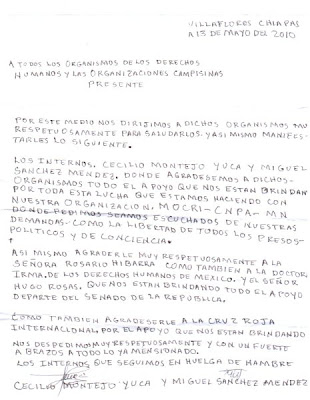 VILLAFLORES CHIAPAS
A 13 DE MAYO DEL 2010
A TODOS LOS ORGANISMOS DE LOS DERECHOS
HUMANOS Y LAS ORGANIZACIONES CAMPISINAS
PRESENTE
POR ESTE MEDIO NOS DIRIJIMOS A DICHOS ORGANISMOS MU
RESPETUOSAMENTE PARA SALUDARLOS. Y ASI MISMO MANIFES-
TARLES LO SIGUIENTE.
LOS INTERNOS. CECILIO MONTEJO YUCA Y MIGUEL
SANCHEZ MENDEZ. DONDE AGRADESEMOS A DICHOS-
ORGANISMOS TODO EL APOYO QUE NOS ESTAN BRINDAN
POR TODA ESTA LUCHA QUE ESTAMOS HACIENDO CON
NUESTRA ORGANIZACION. MOCRI-CNPA-MN
DONDE PEDIMOS SEAMOS ESCUCHADOS DE NUESTRAS
DEMANDAS-COMO LA LIBERTAD DE TODOS LOS PRESOS-
POLITICOS Y DE CONCIENCIA.
ASI MISMO AGRADERLE MUY RESPETUOSAMENTE A LA
SEÑORA ROSARIO HIBARRA COMO TAMBIEN A LA DOCTOR
IRMA. DE LOS DERECHOS HUMANOS DE MEXICO. Y EL SEÑOR
HUGO ROSAS. QUE NOS ESTAN BRINDANDO TODO EL APOYO
DEPARTE DEL SENADO DE LA REPUBLICA.
COMO TAMBIEN AGRADESERLE A LA CRUZ ROJA
INTERNACIONAL. POR EL APOYO QUE NOS ESTAN BRINDANDO
NOS DESPEDIMOS MUY RESPETUOSAMENTE Y CON UN FUERTE
ABRAZOS A TODO LO YA MENSIONADO.
LOS INTERNOS QUE SEGUIMOS EN HUELGA DE HAMBRE
CECILIO MONTEJO YUCA Y MIGUEL SANCHEZ MENDEZ